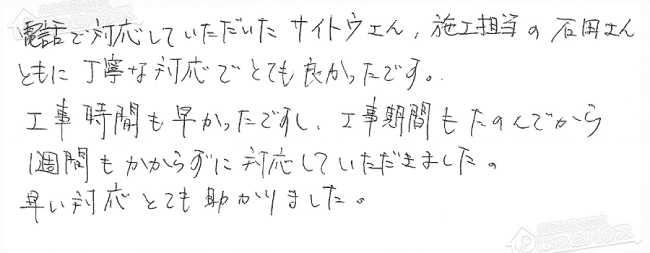 電話で対応していただいたサイトウさん、施工担当の石田さん
ともに丁寧な対応でとても良かったです。
工事時間も早かったですし、工事期間もたのんでから
1週間もかからずに対応していただきました。
早い対応とても助かりました。